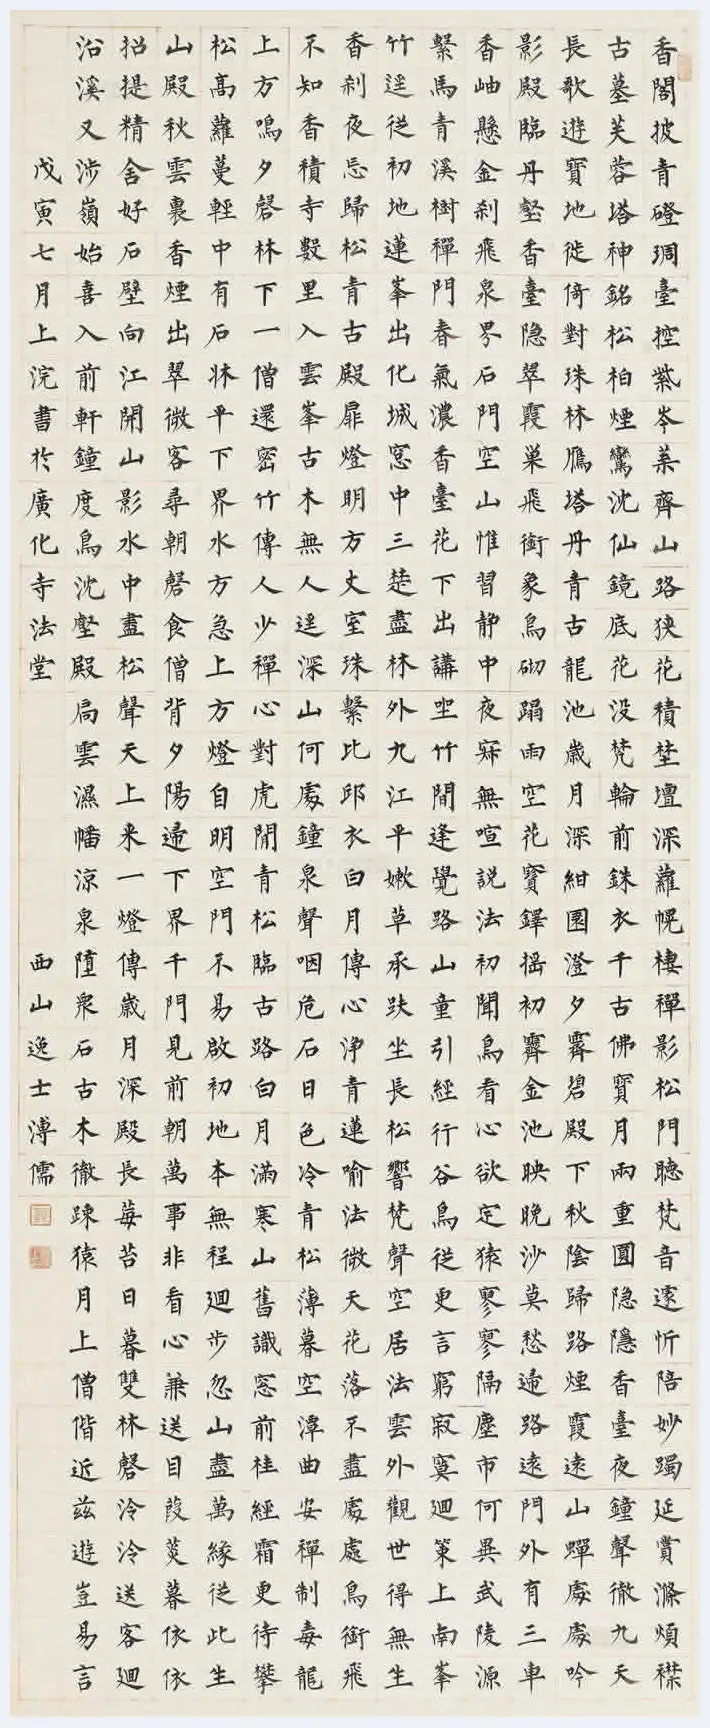 香閣披青磴琱臺控紫岑葉齊山路狹花積埜壇深蘿幌棲禪影松門聽梵音遠忻陪妙躅延賞滌煩襟
古墓芙蓉塔神銘松柏煙鸞沈仙鏡底花没梵輪前銖衣千古佛寶月兩重圓隐隱香臺夜鐘聲徹九天
長歌遊寶地徙倚對珠林鴈塔丹青古龍池歲月深紺園澄夕霽碧殿下秋陰歸路煙霞遠山蟬處處吟
影殿臨丹壑香臺隐翠霞巢飛銜象鳥砌蹋雨空花寶鐸摇初霽金池映晚沙莫愁歸路遠門外有三車
香岫懸金刹飛泉界石門空山惟習静中夜寐無喧説法初聞鳥看心欲定猿寥寥隔塵市何異武陵源
繫馬青溪樹禪門春氣濃香臺花下出講坐竹間逢覺路山童引經行谷鳥從更言窮寂寞迴策上南峯
竹逕從初地蓮峯出化城窓中三楚盡林外九江平嫩草承趺坐長松響梵聲空居法雲外觀世得無生
香刹夜忘歸松青古殿扉燈明方丈室珠繫比邱衣白月傳心净青蓮喻法微天花落不盡處處鳥銜飛
不知香積寺數里入雲峯古木無人逕深山何處鐘泉聲咽危石日色冷青松薄暮空潭曲安禪制毒龍
上方鳴夕磬林下一僧還密竹傳人少禪心對虎閒青松臨古路白月滿寒山舊識窓前桂經霜更待攀
松高蘿蔓輕中有石牀平下界水方急上方燈自明空門不易啟初地本無程迴步忽山盡萬緣從此生
山殿秋雲裏香煙出翠微客尋朝磬食僧背夕陽歸下界千門見前朝萬事非看心兼送目葭菼暮依依
招提精舍好石壁向江開山影水中盡松聲天上来一燈傳歲月深殿長莓苔日暮雙林磬泠泠送客迴
沿溪又涉嶺始喜入前軒鐘度鳥沈壑殿扃雲濕幡涼泉墮衆石古木徹疎猿月上僧偕近兹遊豈易言
戊寅七月上浣書於廣化寺法堂
西山逸士溥儒